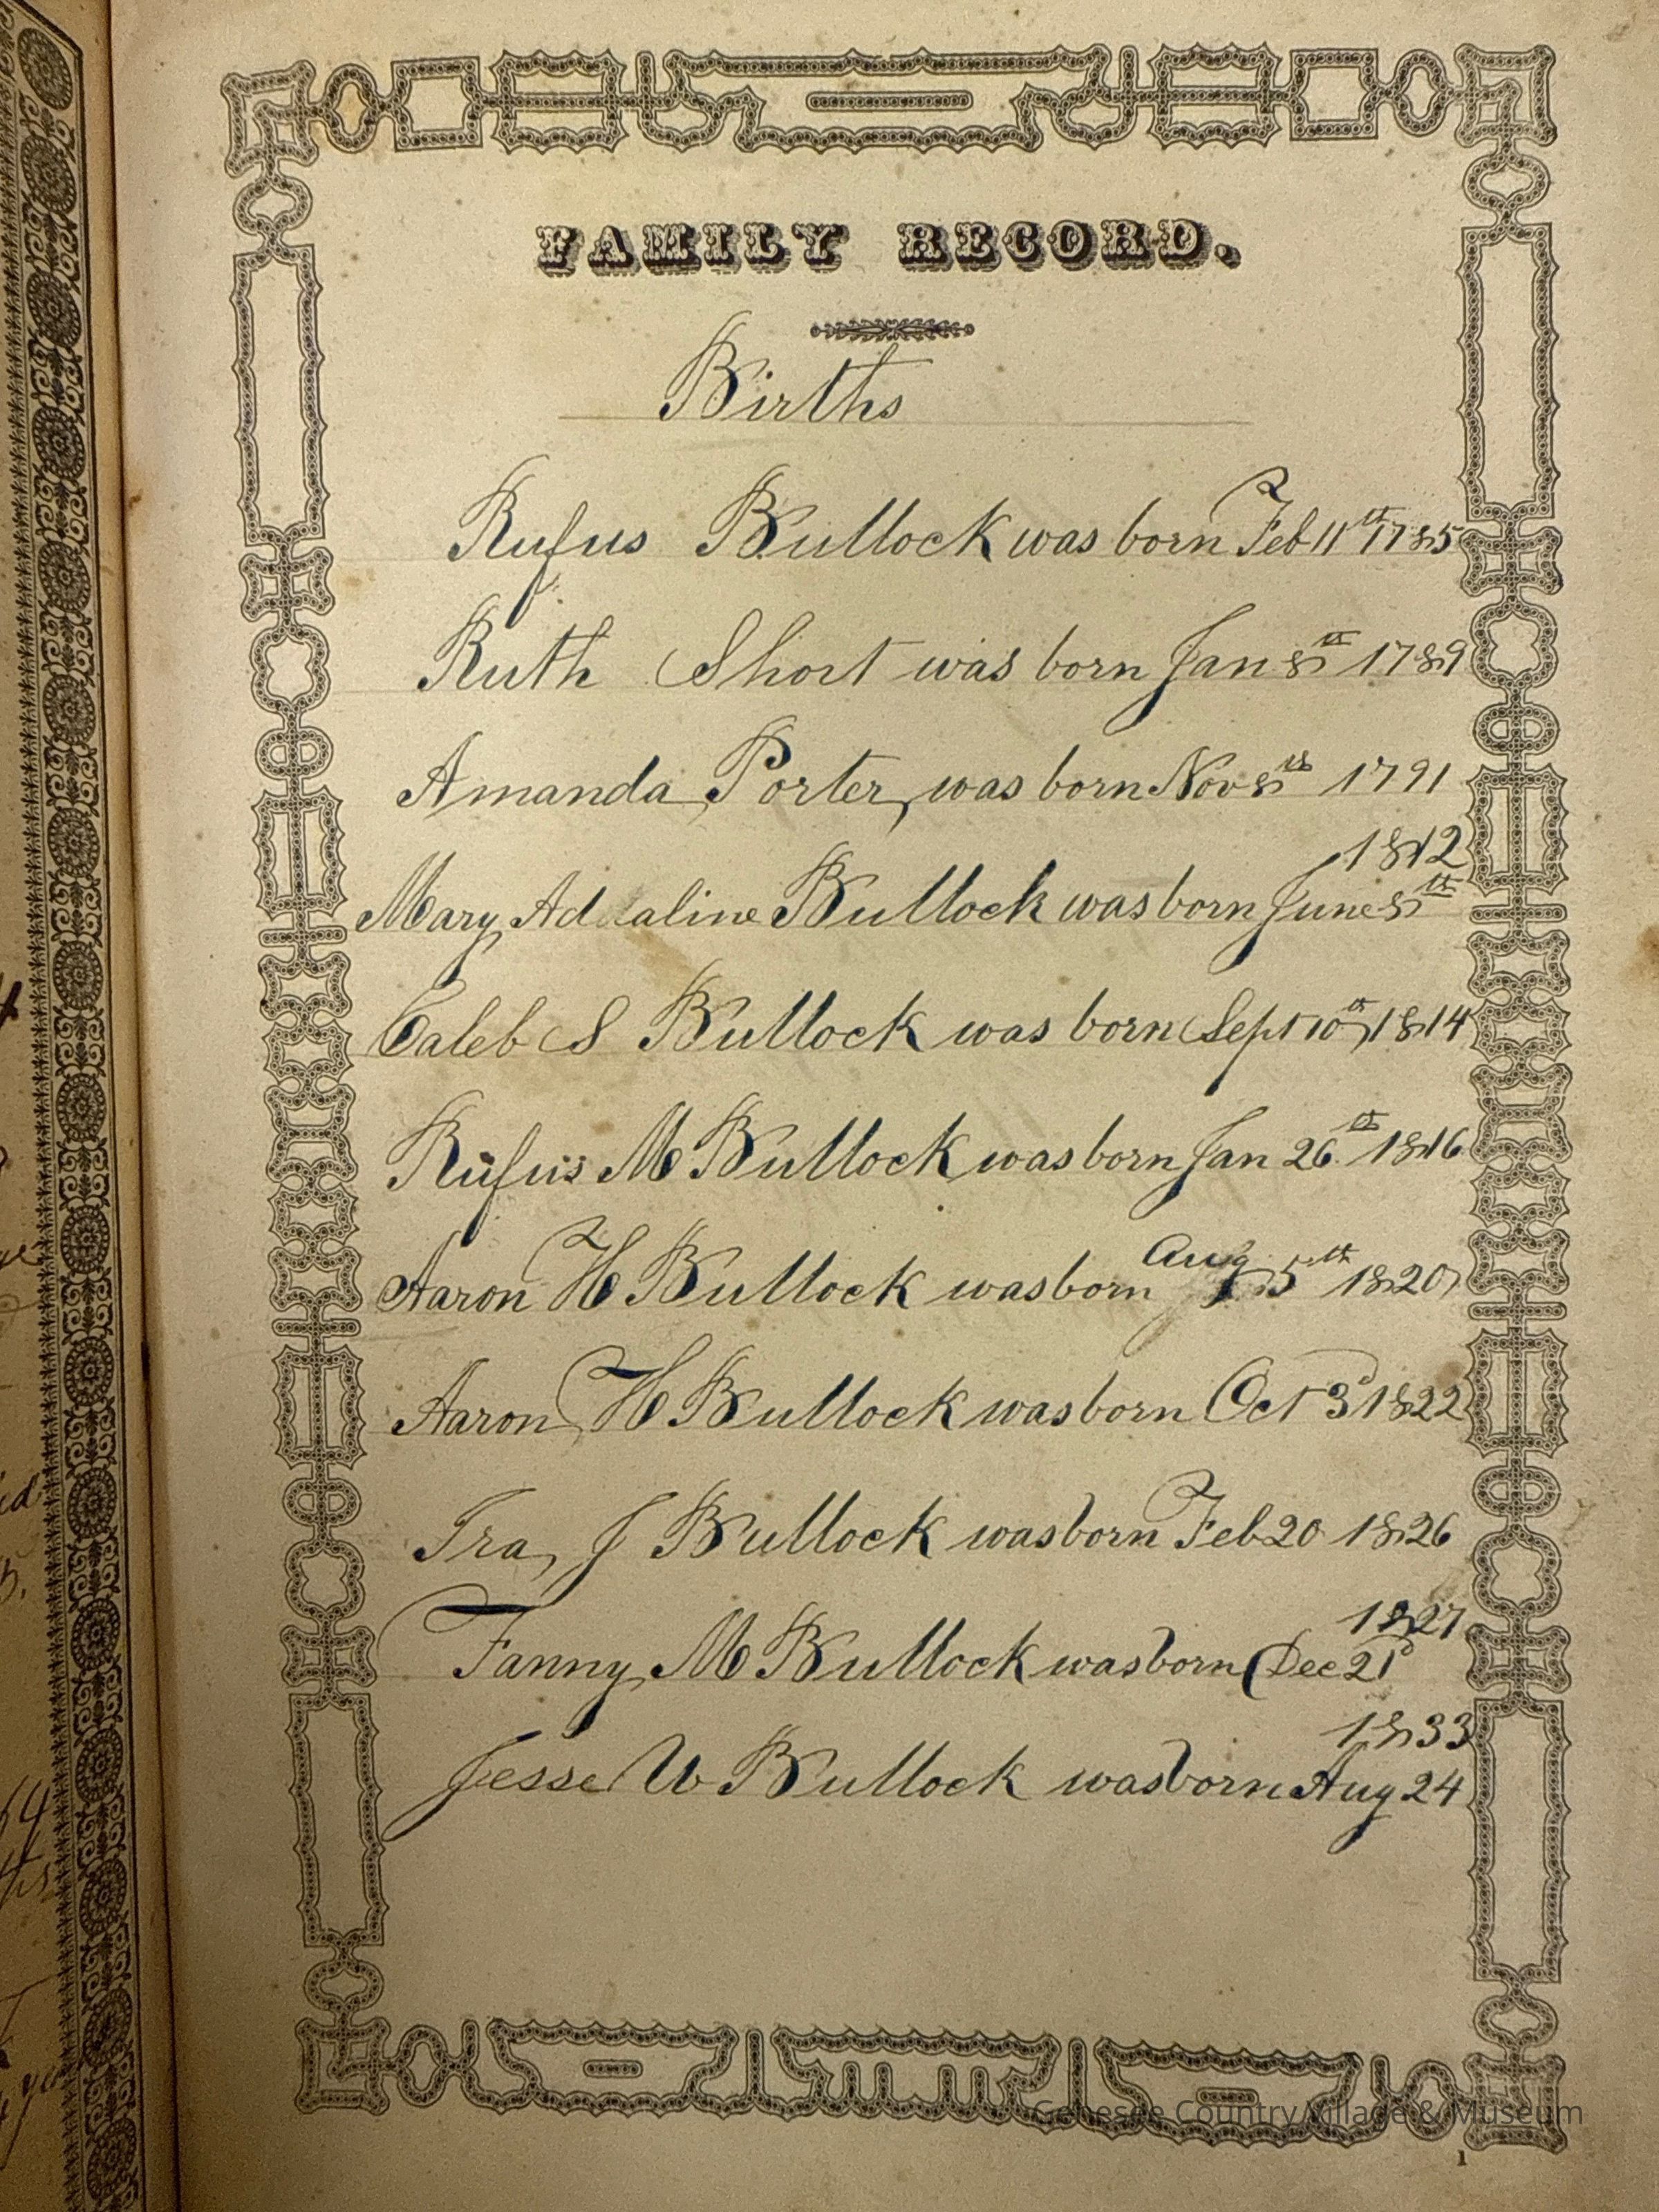 FAMILY RECORD.
Births
Rufus Bullock was born Feb 11th 1785
Ruth Short was born Jan 8th 1789
Amanda Porter was born Nov 8th 1791
1812
Mary Adaline Bullock was born June 8th
Caleb S Bullock was born Sept 10th 1814
Rufus M Bullock was born Jan 26th 1816
Aaron H Bullock was born Aug 5th 1820
Aaron H Bullock was born Oct 3d 1822
Ira J Bullock was born Feb 20 1826
1827
Fanny M Bullock was born Dec 21st
1833
Jesse W Bullock was born Aug 24
Genesee Country Village & Museum
1